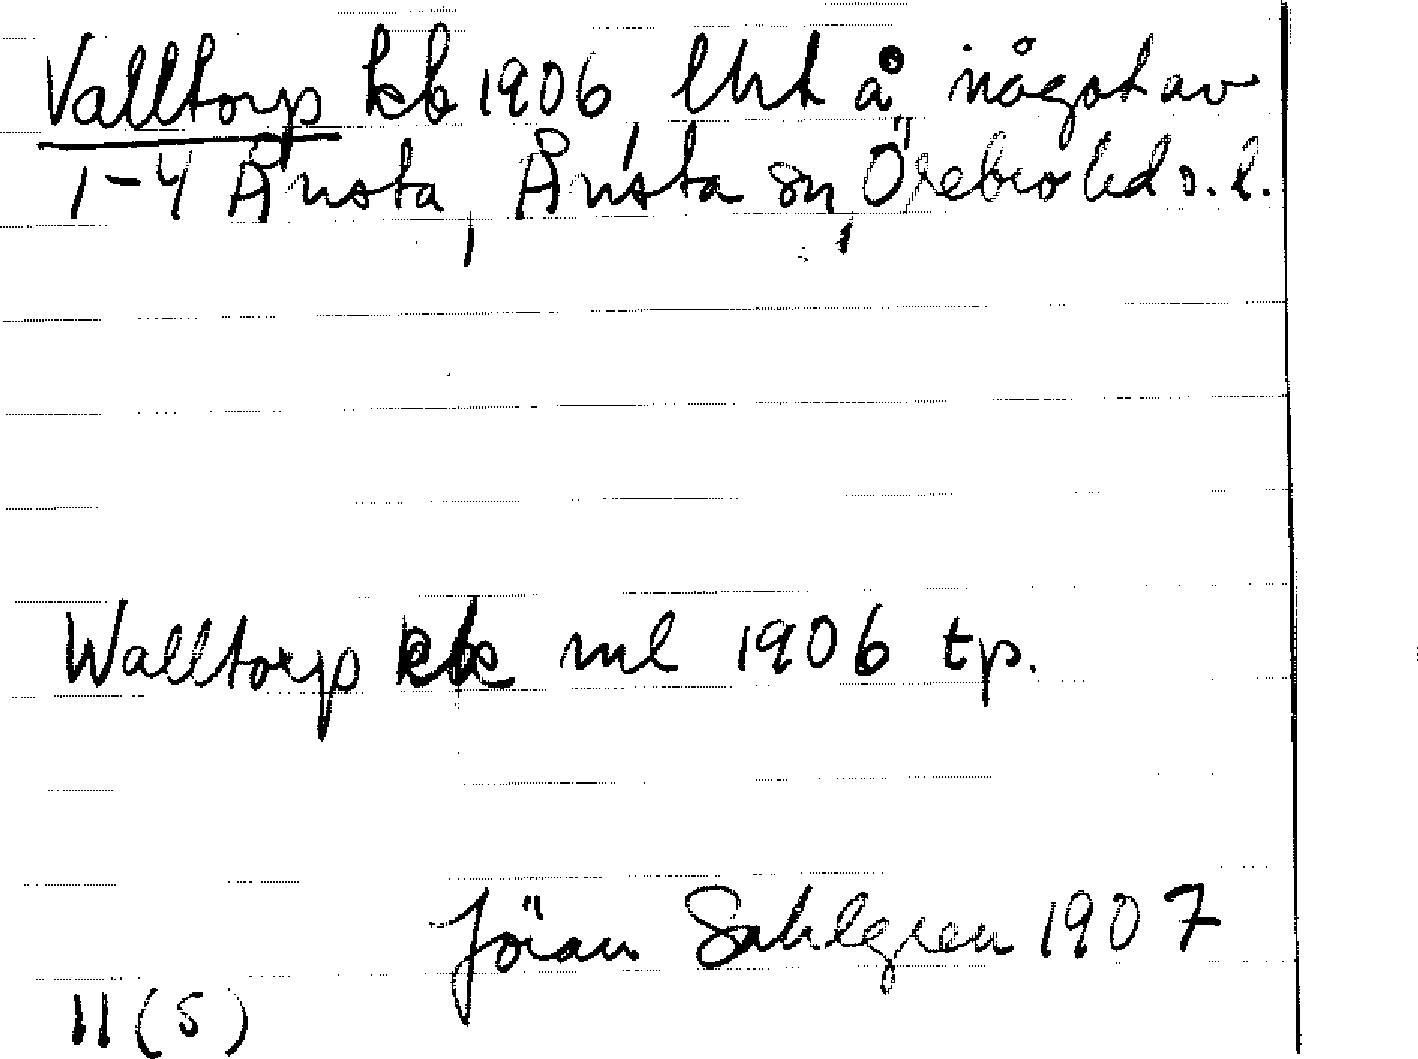 Valltorp kb 1906, lht å något av
1-4 Ånsta, Ånsta sn, Örebro hd s. l.
Walltorp kb ml 1906 tp.
Jöran Sahlgren 1907
11 (5)